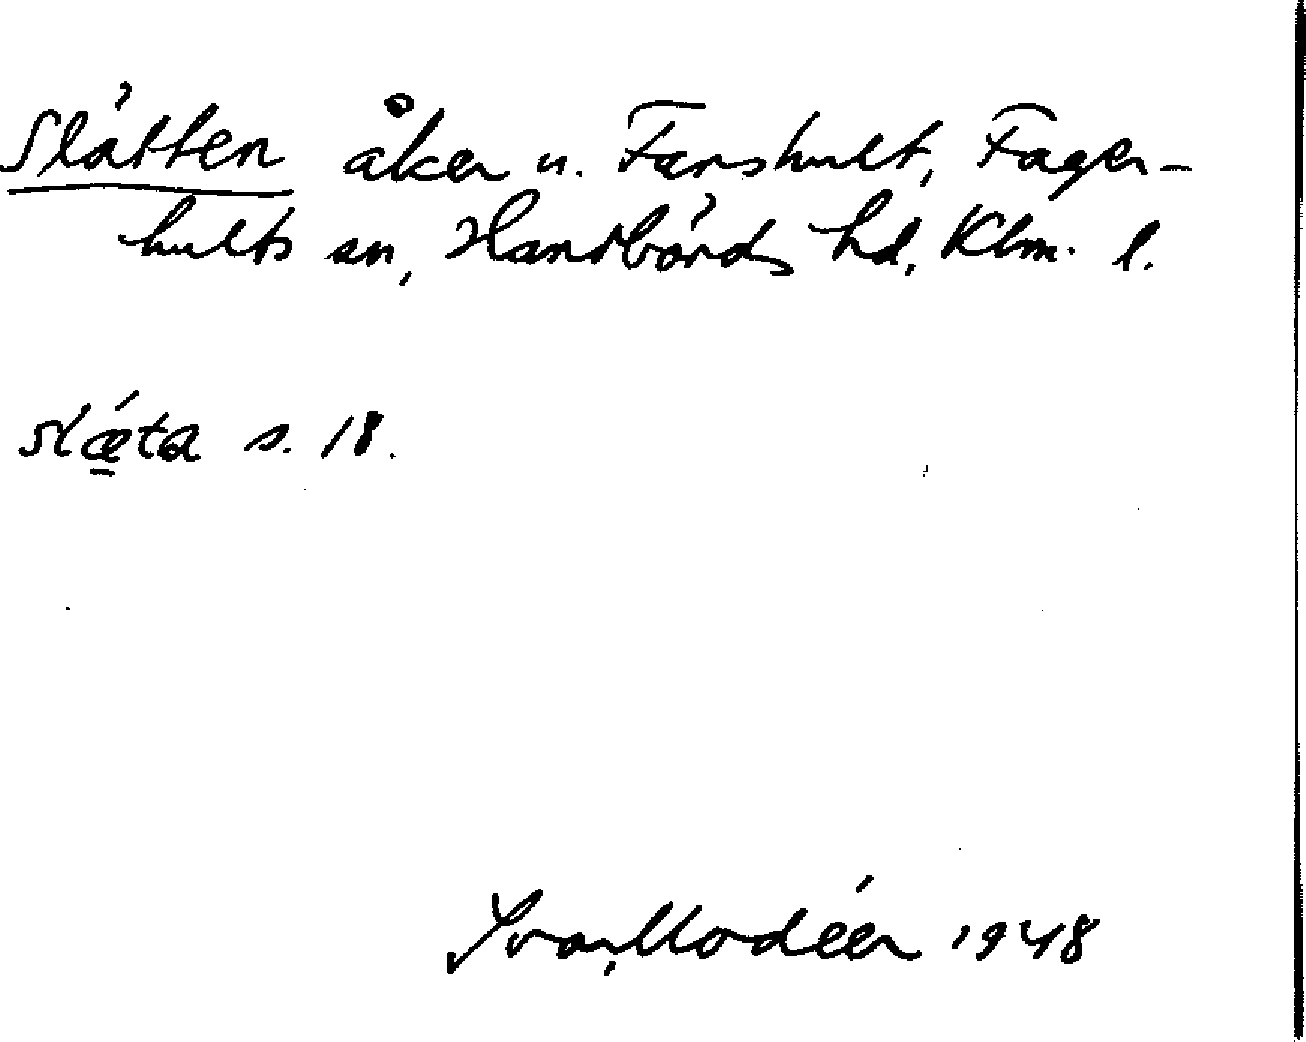 Slätten åker u. Farshult, Fager-
hults sn, Handbörds hd, Klm. l.
slǽta s. 18.
Ivar Modéer 1948